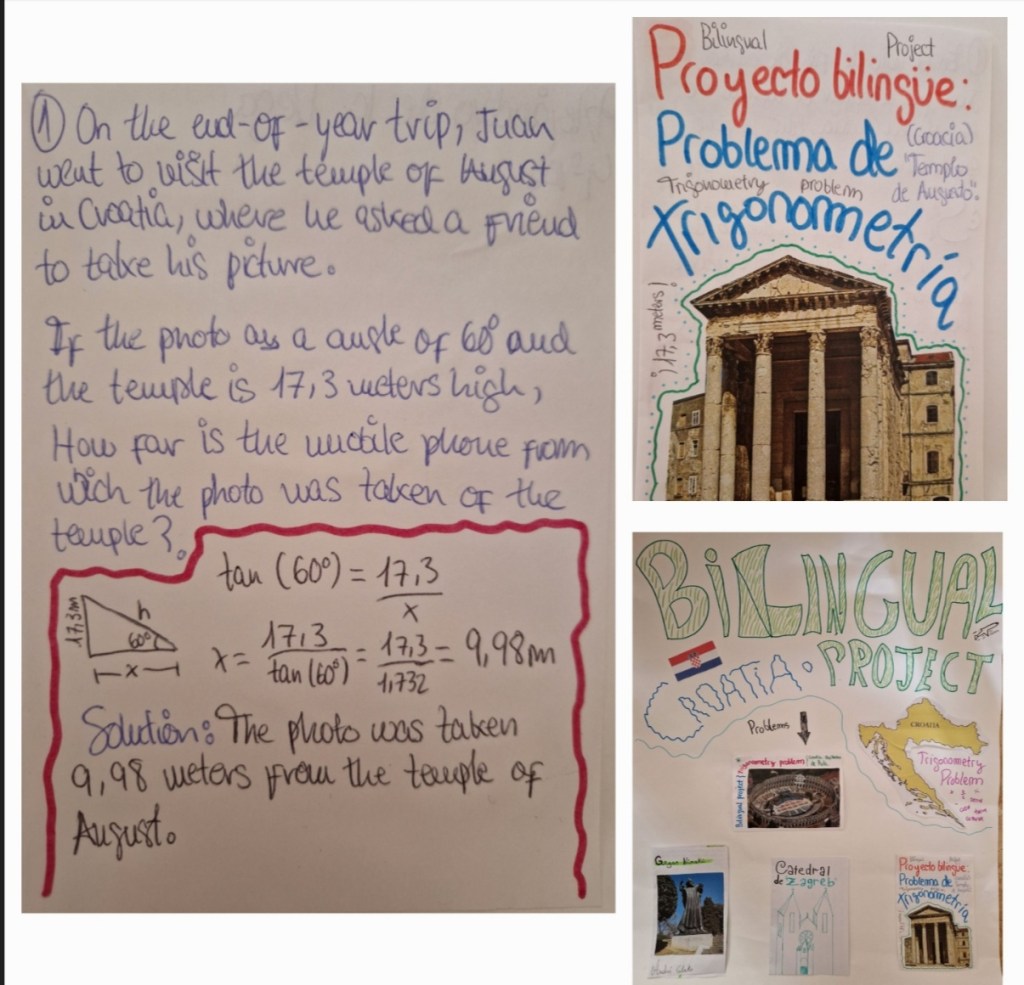 ① On the end-of-year trip, Juan
went to visit the temple of August
in Croatia, where he asked a friend
to take his picture.
If the photo as a angle of 60° and
the temple is 17,3 meters high,
How far is the mobile phone from
wich the photo was taken of the
temple?.
tan (60°) = 17,3 / x
17,3 m
h
60°
x
x = 17,3 / tan (60°) = 17,3 / 1,732 = 9,98m
Solution: The photo was taken
9,98 meters from the temple of
August.
Bilingual Project
Proyecto bilingüe:
Problema de
(Croacia)
"Templo
de Augusto".
Trigonometry problem
Trigonometría
¡17,3 meters!
BILINGUAL
PROJECT
CROATIA.
Problems
CROATIA
Trigonometry
Problem
Trigonometry problem
Bilingual project
Catedral
de Zagreb
Proyecto bilingüe:
Problema de
Trigonometría